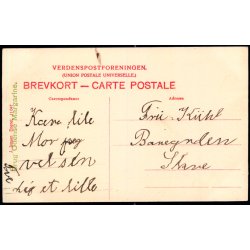 VERDENSPOSTFORENINGEN.
(UNION POSTALE UNIVERSELLE.)
BREVKORT — CARTE POSTALE
Correspondance: Adresse:
Kære lile
Mor jeg
velsen
dig et lille
Frü Kühl
Banegnden
Skive
Brug Odense Margarine.